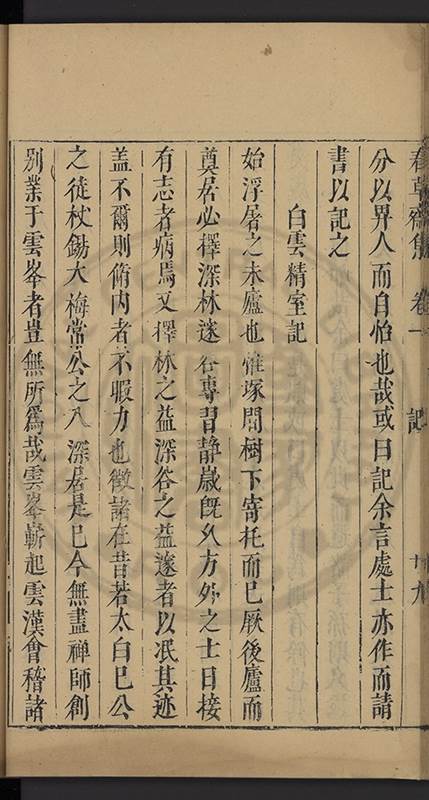 春草齋集 卷一 記 十九
分以畀人而自怡也哉或曰記余言處士亦作而請
書以記之
白雲精室記
始浮屠之未廬也惟塚間樹下寄托而已厥後廬而
奠居必擇深林邃谷專習静嵗既乆方外之士日接
有志者病焉又擇林之益深谷之益邃者以泯其迹
盖不爾則脩内者不暇力也徵諸在昔若太白巳公
之徒杖錫大梅常公之入深居是巳今無盡禪師創
别業于雲峯者豈無所爲哉雲峯嶄起雲漢會稽諸